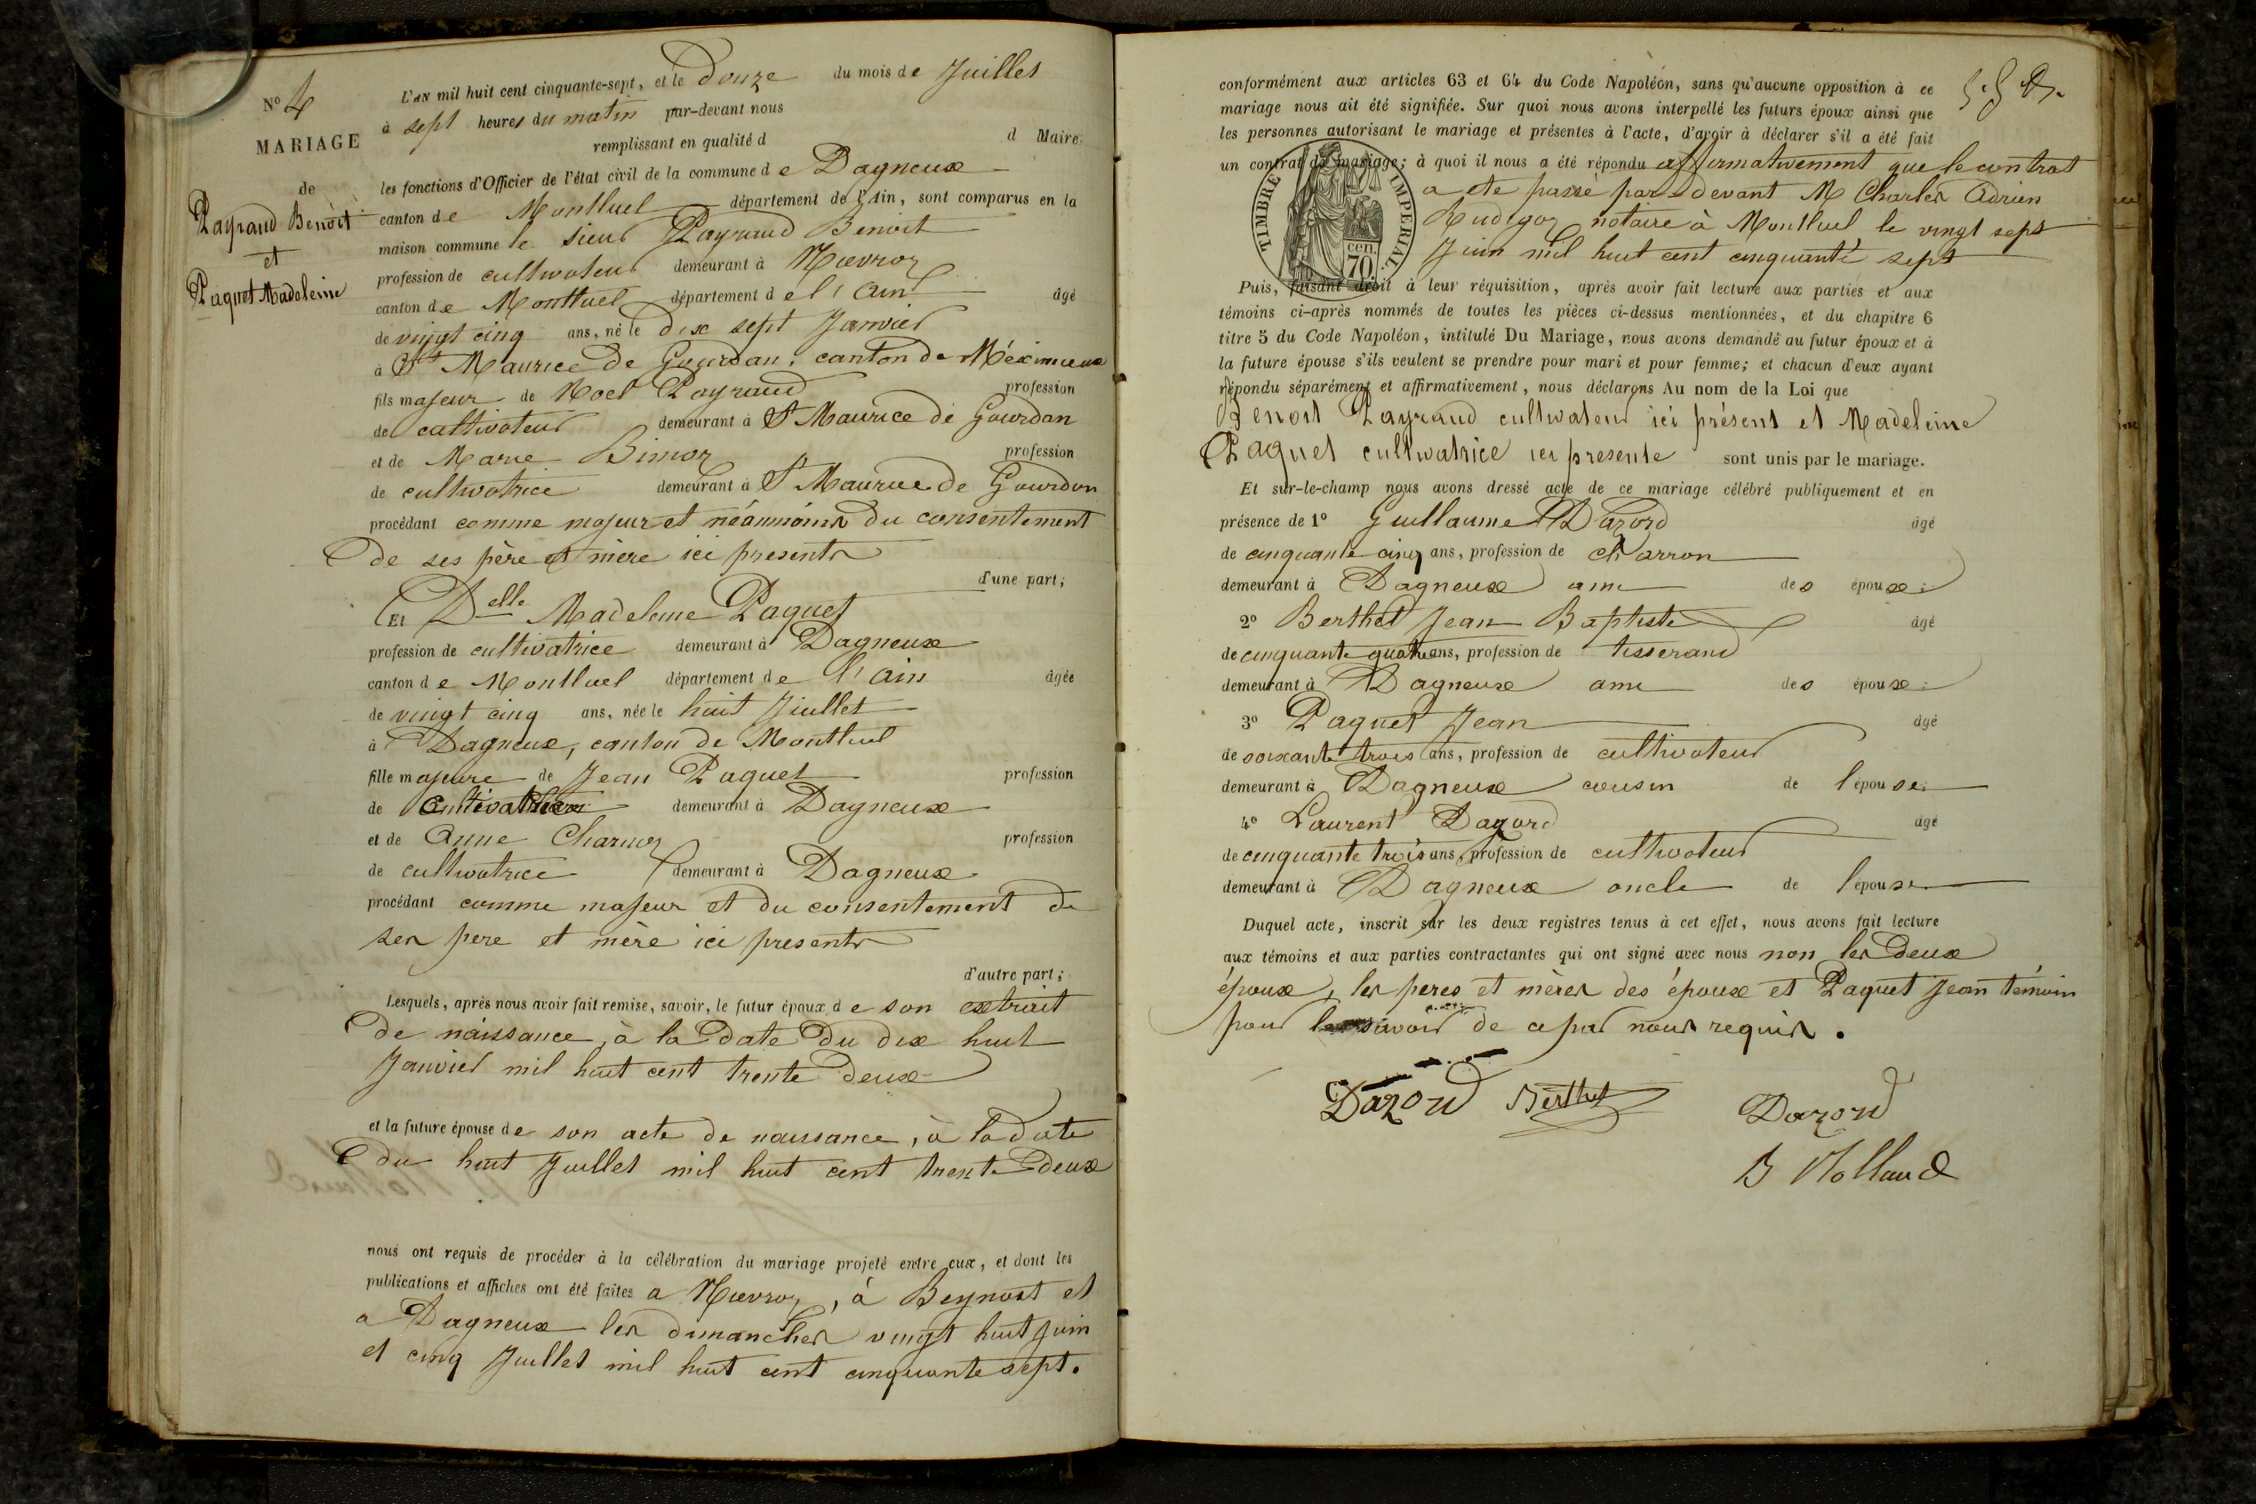 N° 4
MARIAGE
de
Payraud Benoît
et
Paquet Madeleine
L'AN mil huit cent cinquante-sept, et le Douze du mois de Juillet
à sept heures du matin par-devant nous
remplissant en qualité d d Maire
les fonctions d'Officier de l'état civil de la commune de Dagneux
canton de Montluel département de l'Ain, sont comparus en la
maison commune le sieur Payraud Benoit
profession de cultivateur demeurant à
canton de Montluel département de l'Ain âgé
de vingt cinq ans, né le dix sept Janvier
à St Maurice de Gourdan, canton de Méximieux
fils majeur de Noel Payraud profession
de cultivateur demeurant à St Maurice de Gourdan
et de Marie profession
de cultivatrice demeurant à St Maurice de Gourdan
procédant comme majeur et néanmoins du consentement
de ses père et mère ici presents
d'une part;
Et Delle Madeleine Paquet
profession de cultivatrice demeurant à Dagneux
canton de Montluel département de l'Ain âgée
de vingt cinq ans, née le huit Juillet
à Dagneux, canton de Montluel
fille majeure de Jean Paquet profession
de demeurant à Dagneux
et de Anne profession
de cultivatrice demeurant à Dagneux
procédant comme majeur et du consentement de
ses pere et mère ici presents
d'autre part;
Lesquels, après nous avoir fait remise, savoir, le futur époux de son extrait
de naissance, à la date du dix huit
Janvier mil huit cent trente deux
et la future épouse de son acte de naissance, à la date
du huit Juillet mil huit cent trente deux
nous ont requis de procéder à la célébration du mariage projeté entre eux, et dont les
publications et affiches ont été faites a , à Beynost et
a Dagneux les dimanches vingt huit juin
et cinq Juillet mil huit cent cinquante sept.
conformément aux articles 63 et 64 du Code Napoléon, sans qu'aucune opposition à ce
mariage nous ait été signifiée. Sur quoi nous avons interpellé les futurs époux ainsi que
les personnes autorisant le mariage et présentes à l'acte, d'avoir à déclarer s'il a été fait
un contrat de mariage; à quoi il nous a été répondu affirmativement que le contrat
a ete passé par devant M Charles Adrien
Rudigoz notaire à Montluel le vingt sept
Juin mil huit cent cinquante sept
TIMBRE IMPERIAL.
cen.
70
Puis, faisant droit à leur réquisition, après avoir fait lecture aux parties et aux
témoins ci-après nommés de toutes les pièces ci-dessus mentionnées, et du chapitre 6
titre 5 du Code Napoléon, intitulé Du Mariage, nous avons demandé au futur époux et à
la future épouse s'ils veulent se prendre pour mari et pour femme; et chacun d'eux ayant
répondu séparément et affirmativement, nous déclarons Au nom de la Loi que
Benoit Payraud cultivateur ici présent et Madeleine
Paquet cultivatrice ici presente sont unis par le mariage.
Et sur-le-champ nous avons dressé acte de ce mariage célébré publiquement et en
présence de 1° Guillaume Dazord âgé
de cinquante cinq ans, profession de charron
demeurant à Dagneux ami des époux;
2° Berthet Jean Baptiste âgé
de cinquante quatre ans, profession de tisserand
demeurant à Dagneux ami des époux;
3° Paquet Jean âgé
de soixante trois ans, profession de cultivateur
demeurant à Dagneux cousin de l'épouse;
4° Laurent Dazord âgé
de cinquante trois ans, profession de cultivateur
demeurant à Dagneux oncle de l'épouse
Duquel acte, inscrit sur les deux registres tenus à cet effet, nous avons fait lecture
aux témoins et aux parties contractantes qui ont signé avec nous non les deux
époux, les peres et mères des époux et Paquet Jean témoin
pour savoir de ce par nous requis.
Dazord Berthet Dazord
B Rolland